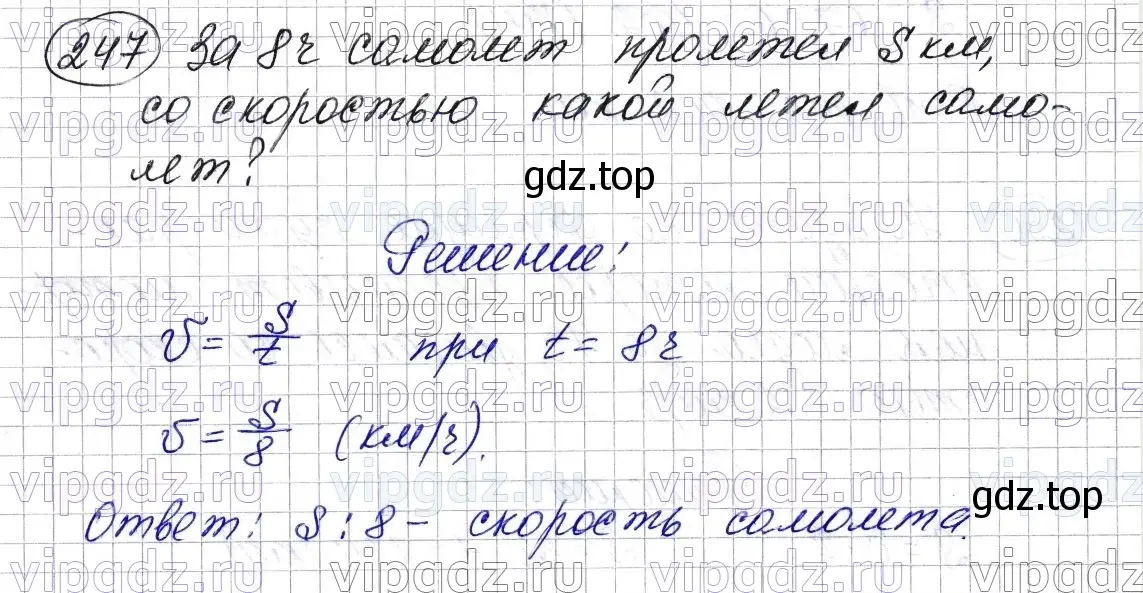 247 За 8ч самолет пролетел S км,
со скоростью какой летел само-
лет?
gdz.top
Решение:
v = S/t при t = 8ч
v = S/8 (км/ч).
gdz.top
Ответ: S : 8 - скорость самолета.
vipgdz.ru